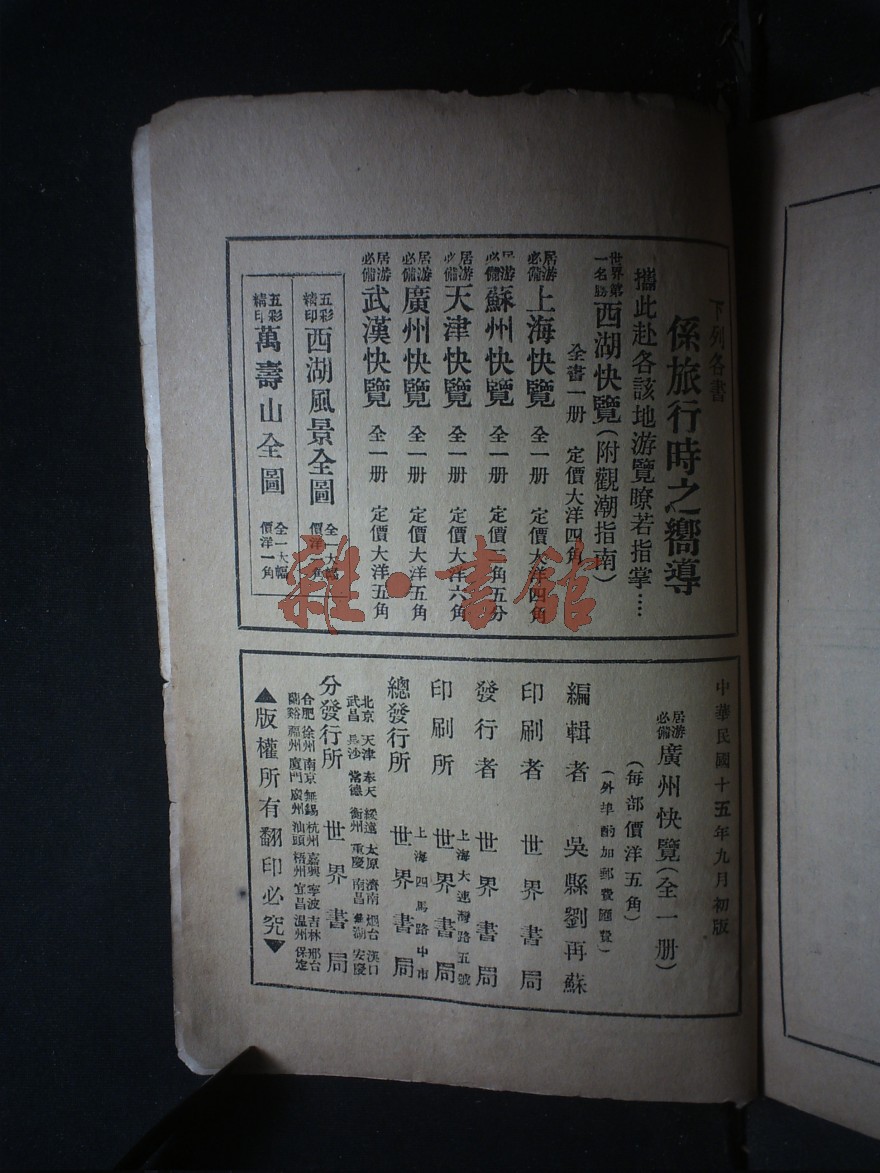 下列各書
係旅行時之嚮導
攜此赴各該地游覽瞭若指掌……
世界第一名勝 西湖快覽(附觀潮指南)
全書一册 定價大洋四角
居游必備 上海快覽 全一册 定價大洋四角
居游必備 蘇州快覽 全一册 角五分
居游必備 天津快覽 全一册 定價大洋六角
居游必備 廣州快覽 全一册 定價大洋五角
居游必備 武漢快覽 全一册 定價大洋五角
五彩精印 西湖風景全圖 全一大幅 價洋 角
五彩精印 萬壽山全圖 全一大幅 價洋一角
雜·書館
中華民國十五年九月初版
居游必備 廣州快覽(全一册)
(每部價洋五角)
(外埠酌加郵費匯費)
編輯者 吳縣劉再蘇
印刷者 世界書局
發行者 世界書局
印刷所 上海大連灣路五號 世界書局
總發行所 上海四馬路中市 世界書局
分發行所 世界書局
北京 天津 奉天 綏遠 太原 濟南 烟台 漢口
武昌 長沙 常德 衡州 重慶 南昌 蕪湖 安慶
合肥 徐州 南京 無錫 杭州 嘉興 寧波 吉林 邢台
蘭谿 福州 廈門 廣州 汕頭 梧州 宜昌 溫州 保定
▲版權所有翻印必究▼